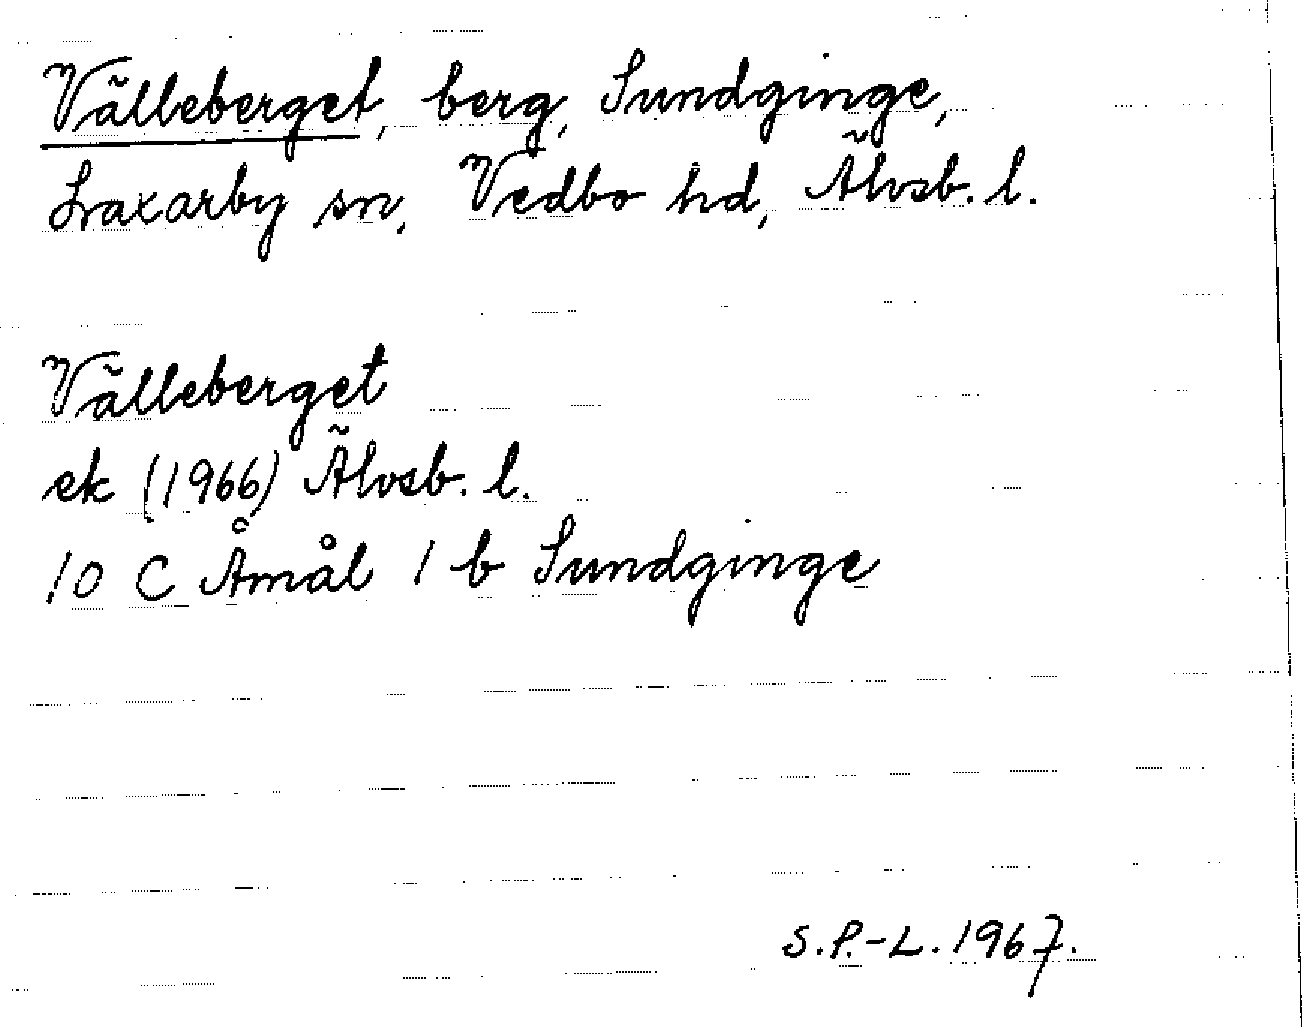 Välleberget, berg, Sundginge,
Laxarby sn, Vedbo hd, Älvsb. l.
Välleberget
ek (1966) Älvsb. l.
10 C Åmål 1 b Sundginge
S.P.-L. 1967.